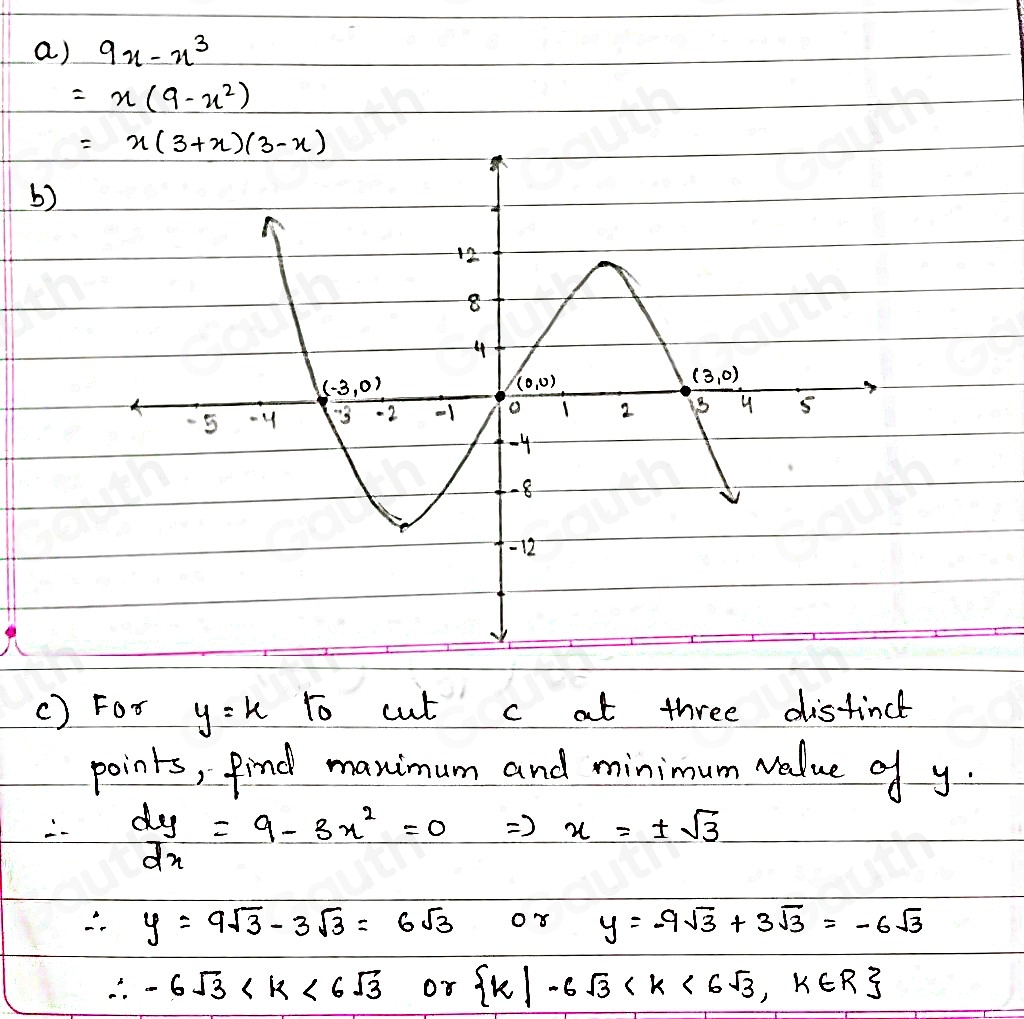 a) 9x - x³
= x(9 - x²)
= x(3+x)(3-x)
b)
12
8
4
(-3,0) (0,0) (3,0)
-5 -4 -3 -2 -1 0 1 2 3 4 5
-4
-8
-12
c) For y=k to cut c at three distinct
points, find maximum and minimum value of y.
∴ dy/dx = 9 - 3x² = 0 => x = ±√3
∴ y = 9√3 - 3√3 = 6√3 or y = -9√3 + 3√3 = -6√3
∴ -6√3 < k < 6√3 or {k | -6√3 < k < 6√3, K∈R}
Gauth